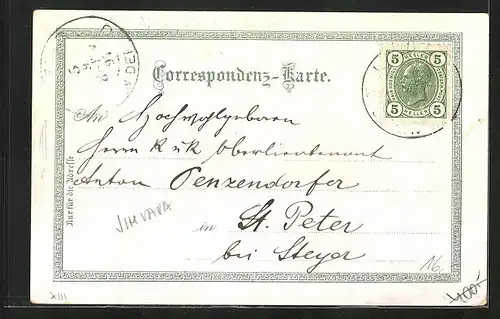 Correspondenz-Karte.
5 HELLER 5
5 HELLER 5
An Hochwohlgeboren
Herrn k u k Oberlieutenant
Anton Penzendorfer
in St. Peter
bei Steyer
Nur für die Adresse
XIII
16.-
400.-